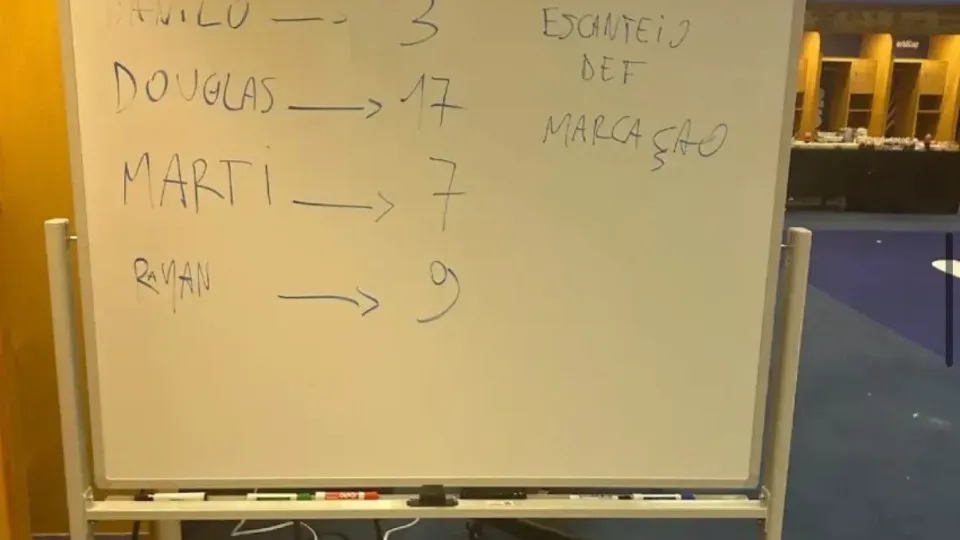 DANILO → 3
DOUGLAS → 17
MARTI → 7
RAYAN → 9
ESCANTEIO
DEF
MARCAÇÃO